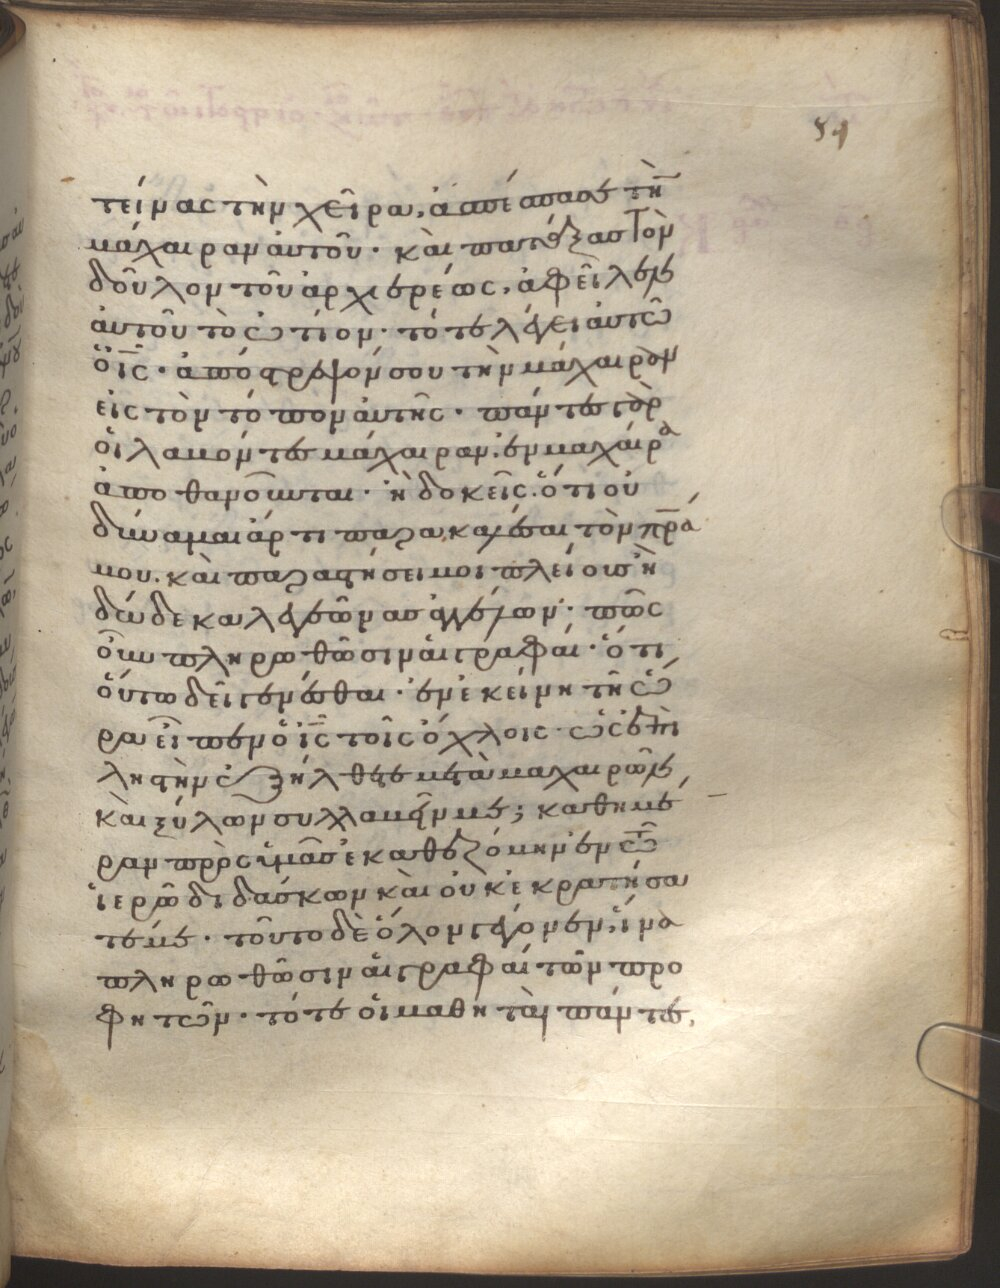 τείνας τὴν χεῖρα, ἀπέσπασε τὴν
μάχαιραν αὐτοῦ· καὶ πατάξας τὸν
δοῦλον τοῦ ἀρχιερέως, ἀφεῖλεν
αὐτοῦ τὸ ὠτίον· τότε λέγει αὐτῶ
ὁ ις· ἀπόστρεψόν σου τὴν μάχαιραν
εἰς τὸν τόπον αὐτῆς· πάντες γὰρ
οἱ λαβόντες μάχαιραν, ἐν μαχαίρα
ἀποθανοῦνται· ἢ δοκεῖς, ὅτι οὐ
δύναμαι ἄρτι παρακαλέσαι τὸν πρα
μου, καὶ παραστήσει μοι πλείους ἢ
δώδεκα λεγεῶνας ἀγγέλων· πῶς
οὖν πληρωθῶσιν αἱ γραφαί· ὅτι
οὕτω δεῖ γενέσθαι· ἐν ἐκείνη τῆ ὥ
ρα εἶπεν ὁ ις τοῖς ὄχλοις· ὡς ἐπὶ
ληστὴν ἐξήλθετε μετὰ μαχαιρῶν
καὶ ξύλων συλλαβεῖν με; καθημέ
ραν πρὸς ὑμᾶς ἐκαθεζόμην ἐν τῶ
ἱερῶ διδάσκων καὶ οὐκ ἐκρατήσα
τέ με· τοῦτο δὲ ὅλον γέγονεν, ἵνα
πληρωθῶσιν αἱ γραφαὶ τῶν προ
φητῶν· τότε οἱ μαθηταὶ πάντες,